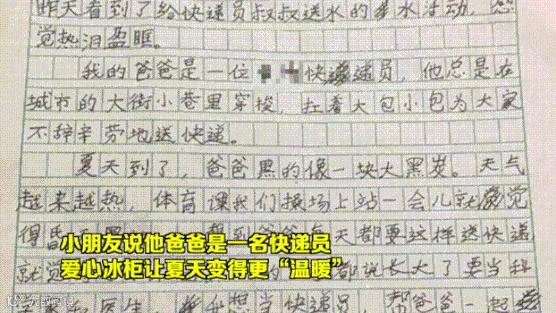 昨天看到了给快递员叔叔送水的
活动,感
觉热泪盈眶。
我的爸爸是一位快递员,他总是在
城市的大街小巷里穿梭,扛着大包小包为大家
不辞辛劳地送快递。
夏天到了,爸爸黑的像一块大黑炭。天气
越来越热,体育课我们操场上站一会儿就感觉
得
天都要这样送快递
小朋友说他爸爸是一名快递员
就觉
都说长大了要当科
爱心冰柜让夏天变得更“温暖”
医生,我想当快递员,帮爸爸一起